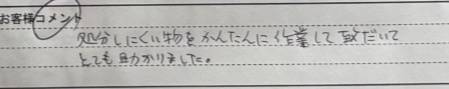 お客様コメント
処分しにくい物をかんたんに作業して頂だいて
とても助かりました。